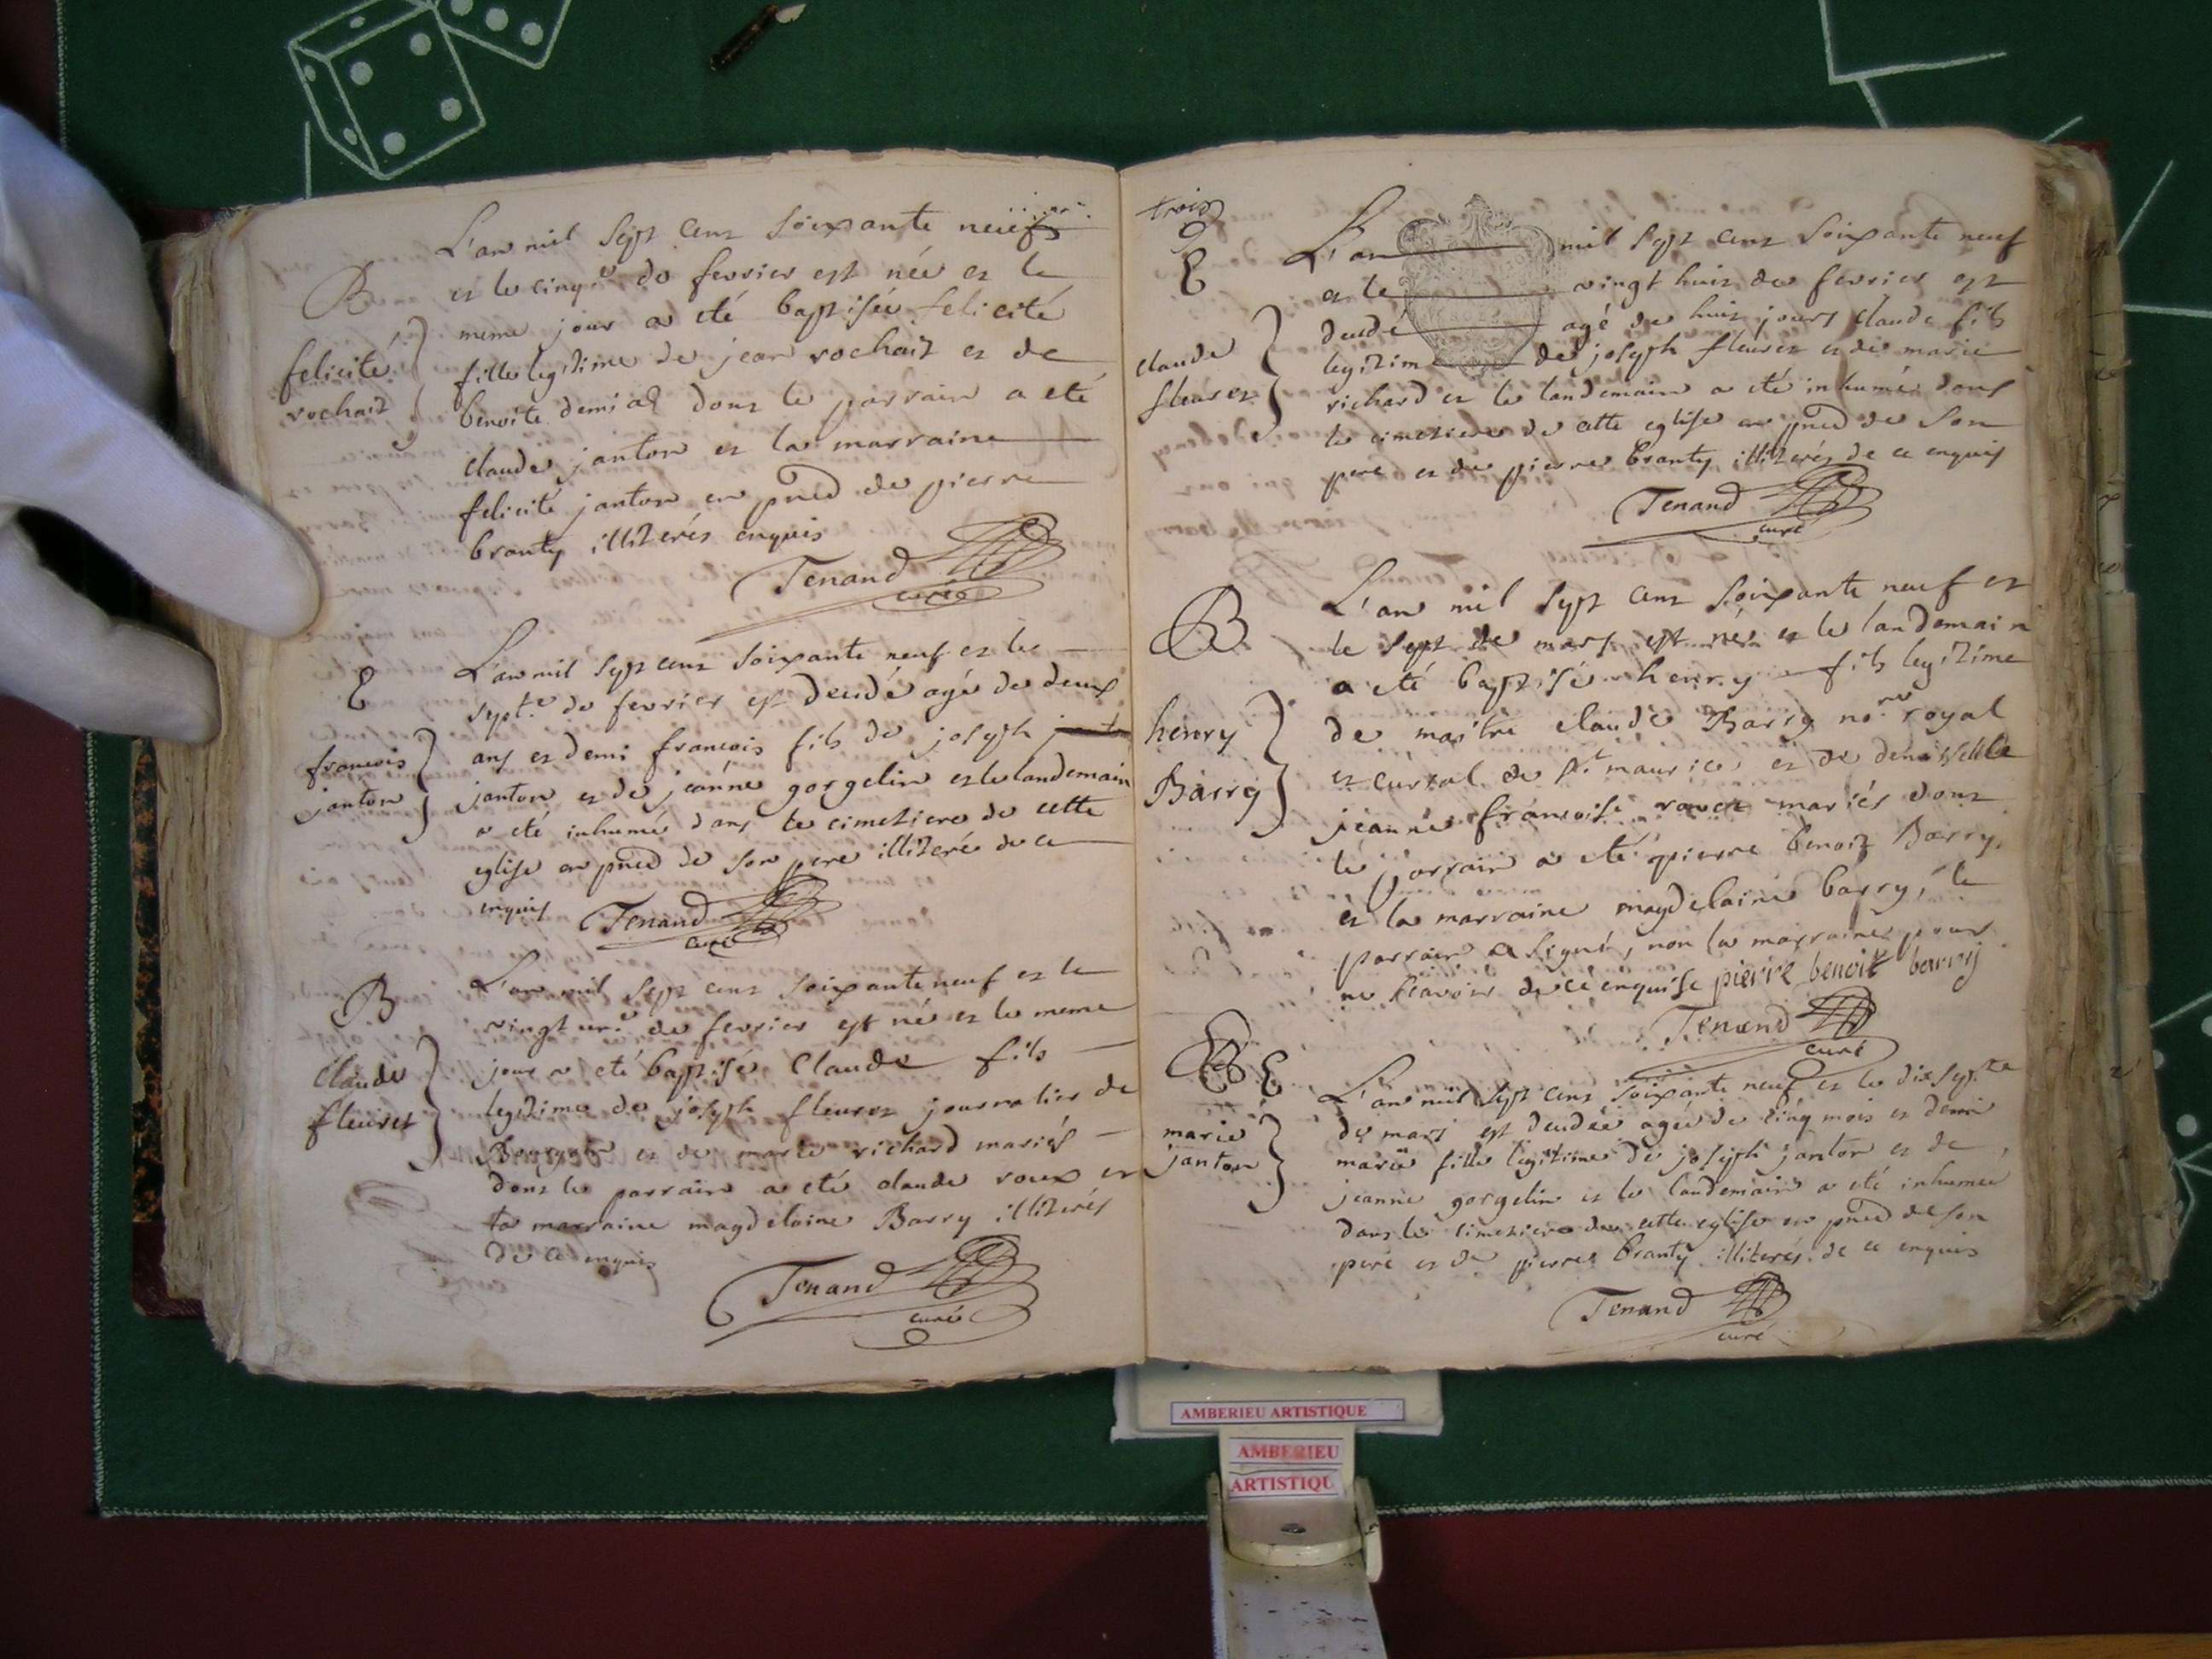 B
felicité
rochaix
L'an mil sept cent soixante neuf
et le cinqe du fevrier est née et le
meme jour a eté baptisée felicité
fille legitime de jean rochaix et de
benoite demiaz dont le parrain a eté
claude janton et la marraine
felicité janton en pnce de pierre
branty illiterés enquis
Tenand
curé
E
francois
janton
L'an mil sept cent soixante neuf et le
septe du fevrier est decedé agé de deux
ans et demi francois fils de joseph
janton et de jeanne gorgelin et le landemain
a eté inhumé dans le cimetiere de cette
eglise en pnce de son pere illiteré de ce
enquis Tenand
curé
B
Claude
fleuret
L'an mil sept cent soixante neuf et le
vingt une de fevrier est né et le meme
jour a eté baptisé Claude fils
legitime de joseph fleuret journalier de
et de marie richard mariés
dont le parrain a eté claude roux et
la marraine magdelaine Barry illiterés
de ce enquis
Tenand
curé
trois
E
claude
fleuret
L'an mil sept cent soixante neuf
et le vingt huit de fevrier est
decedé agé de huit jours claude fils
legitime de joseph fleuret et de marie
richard et le landemain a eté inhumé dans
le cimetiere de cette eglise en pnce de son
pere et de pierre branty illiterés de ce enquis
Tenand
curé
B
henry
Barry
L'an mil sept cent soixante neuf et
le sept de mars est né et le landemain
a eté baptisé henry fils legitime
de maitre claude Barry nore royal
et curial de st maurice et de demoiselle
jeanne francoise ravet mariés dont
le parrain a eté pierre benoit Barry,
et la marraine magdelaine barry, le
parrain a signé, non la marraine pour
ne scavoir de ce enquise pierre benoit barry
Tenand
curé
E
marie
janton
L'an mil sept cent soixante neuf et le dix septe
de mars est decedée agée de cinq mois et demi
marie fille legitime de joseph janton et de
jeanne gorgelin et le landemain a eté inhumée
dans le cimetiere de cette eglise en pnce de son
pere et de pierre branty illiterés de ce enquis
Tenand
curé
AMBERIEU ARTISTIQUE
AMBERIEU
ARTISTIQU